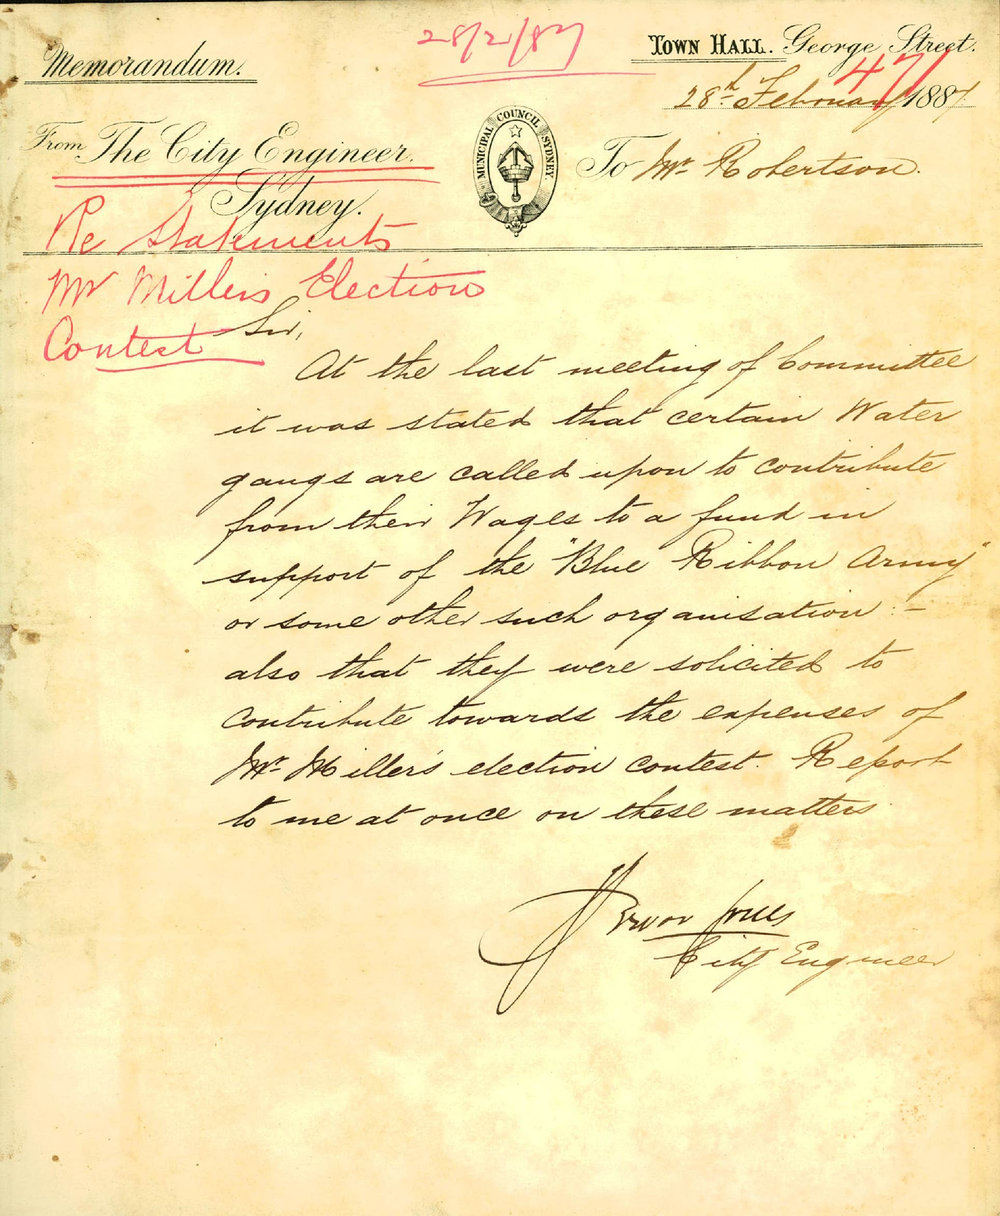 28/2/87
Memorandum.
TOWN HALL. George Street.
471
28th February 1887
From The City Engineer.
Sydney.
MUNICIPAL COUNCIL SYDNEY
To Mr. Robertson.
Re Statements
Mr Millers Election
Contest
Sir,
At the last meeting of Committee
it was stated that certain Water
gangs are called upon to contribute
from their Wages to a fund in
support of the "Blue Ribbon Army"
or some other such organisation :-
also that they were solicited to
contribute towards the expenses of
Mr. Miller's election contest. Report
to me at once on these matters.
Trevor Jones
City Engineer